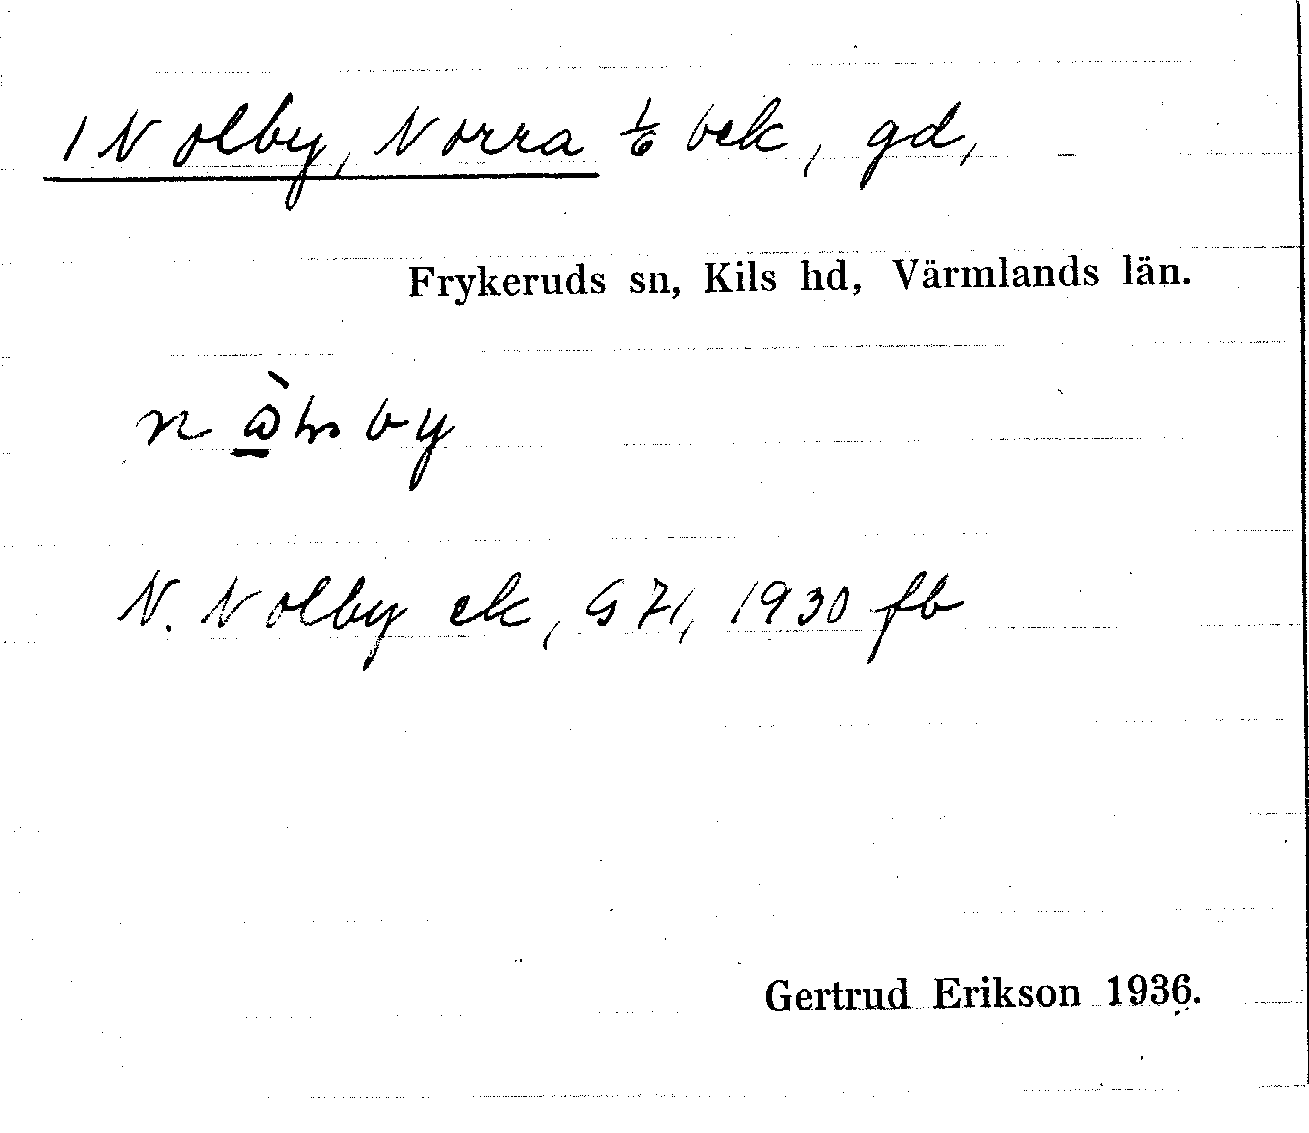 1 Nolby, Norra 1/6 bek, gd,
Frykeruds sn, Kils hd, Värmlands län.
N. Nolby ek, G 71, 1930 fb
Gertrud Erikson 1936.